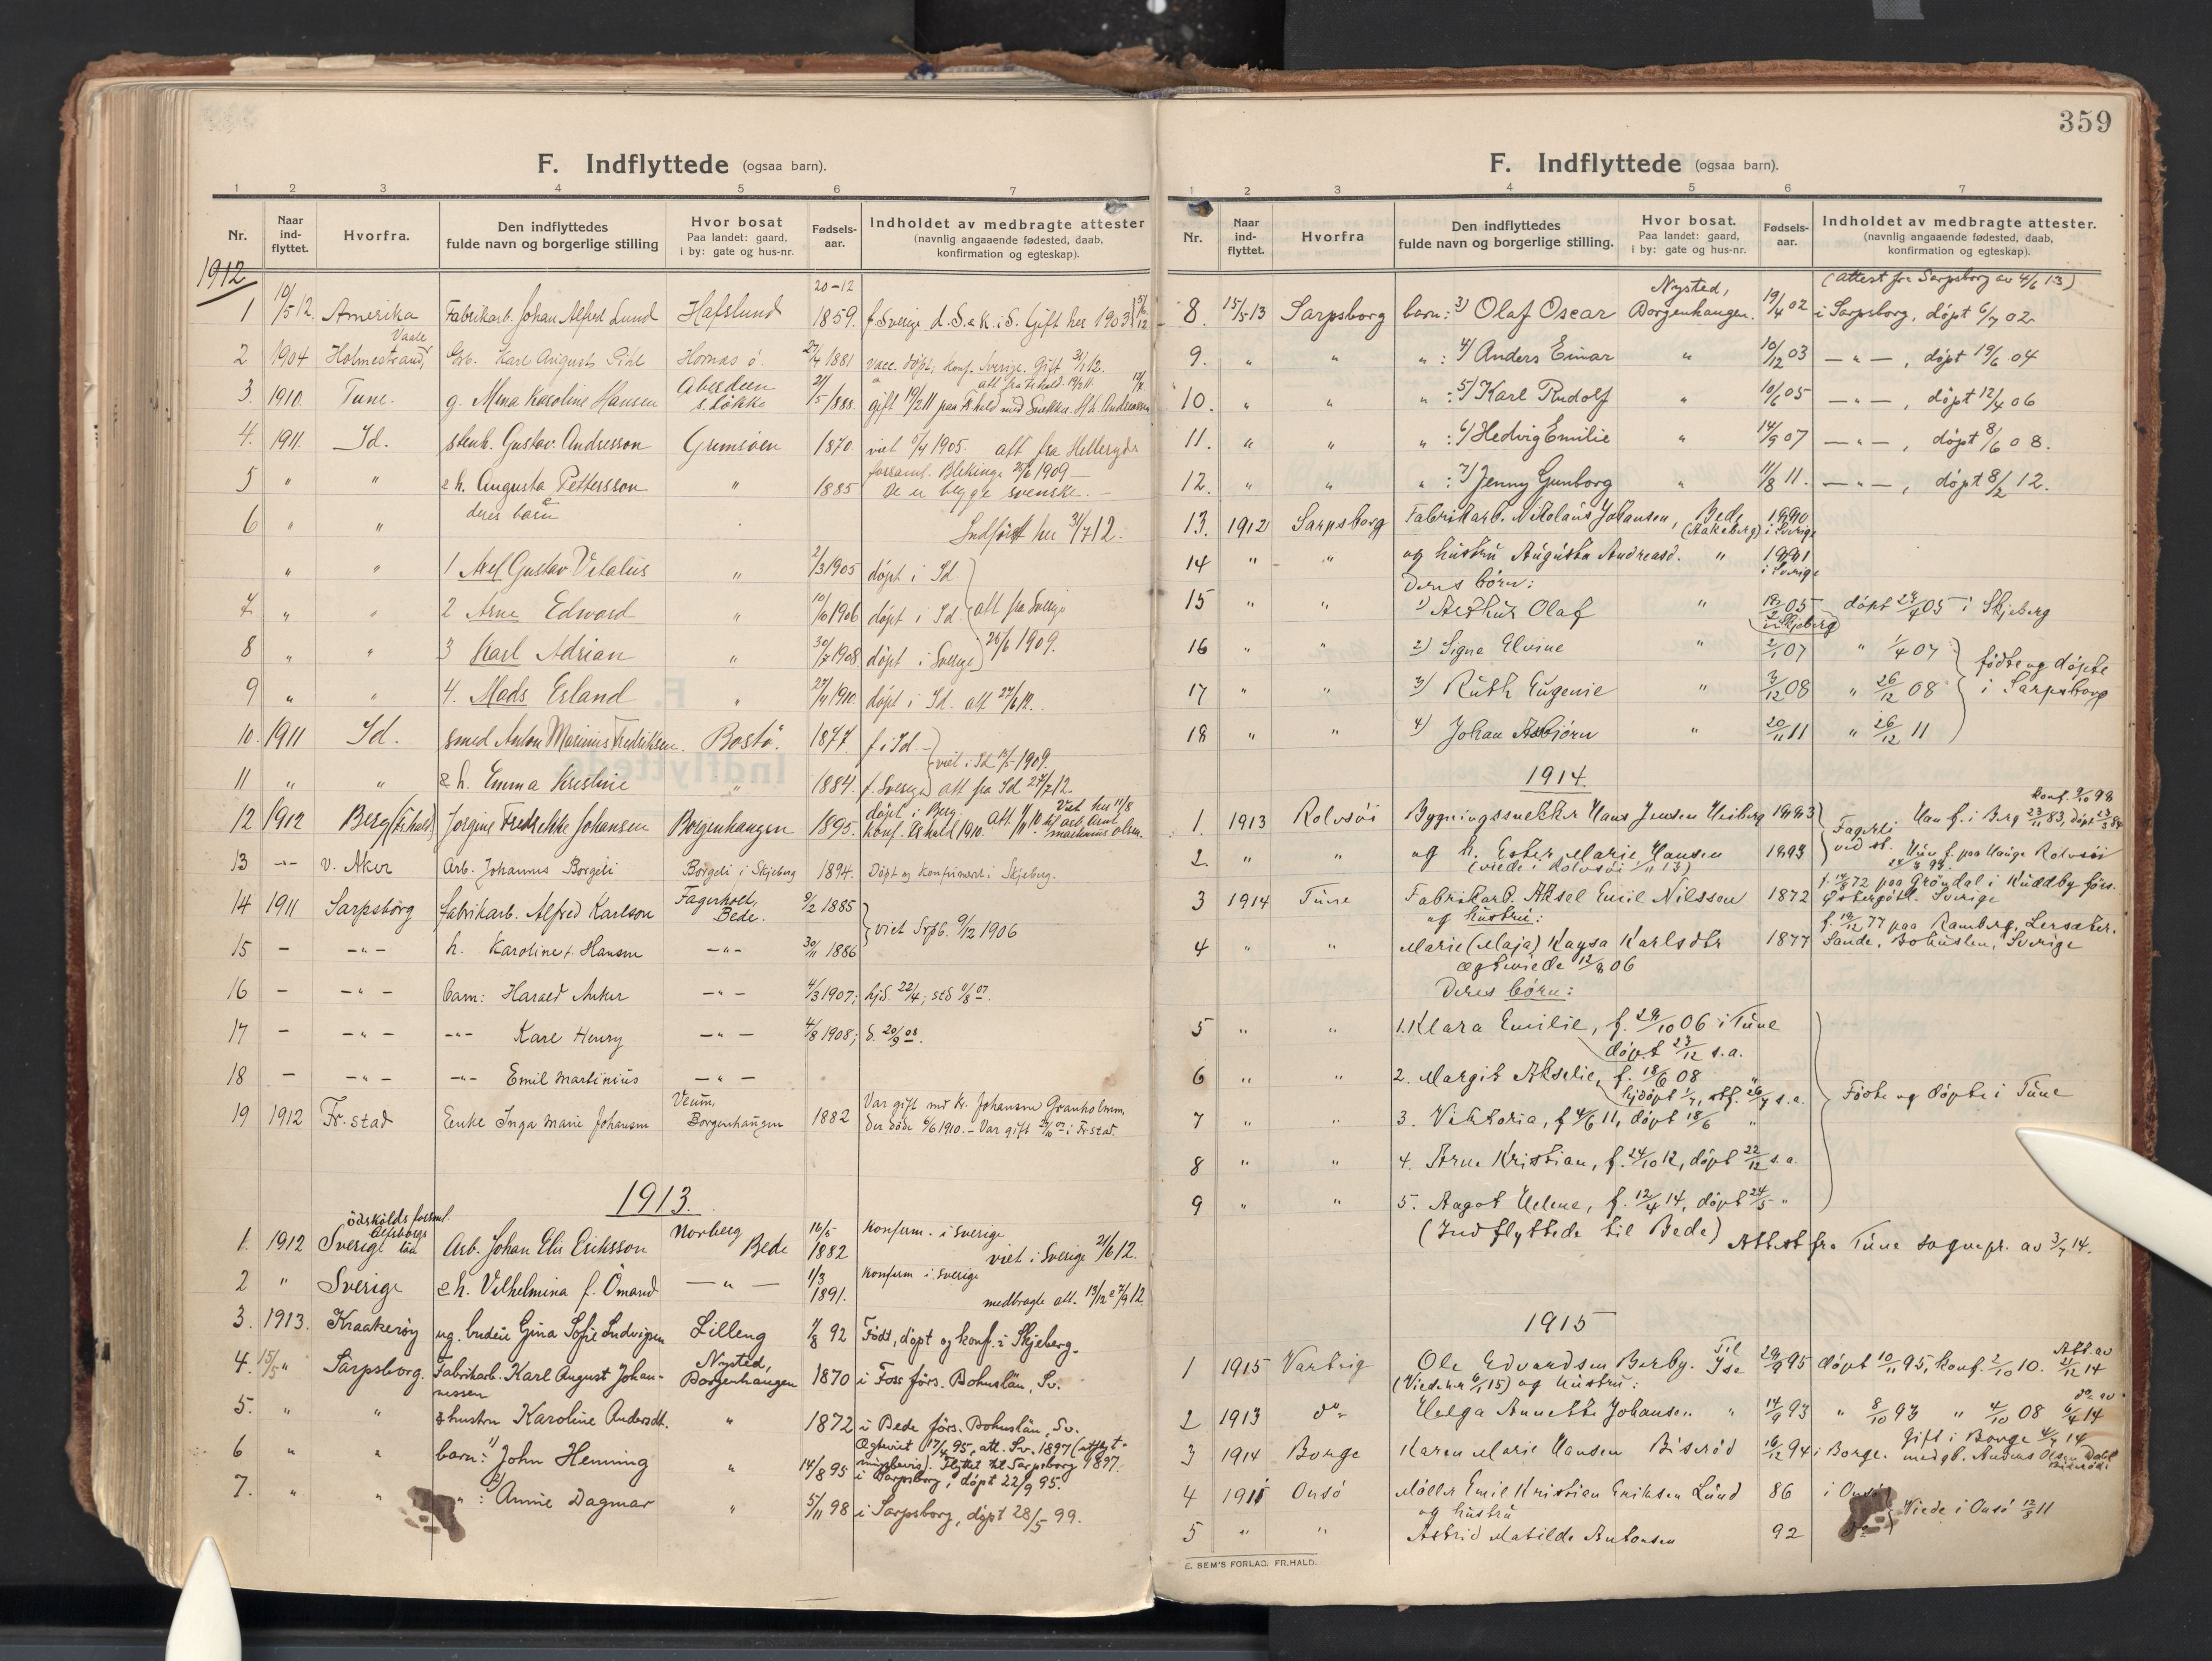 359
F. Indflyttede (ogsaa barn).
1 2 3 4 5 6 7
Nr. Naar ind-flyttet. Hvorfra. Den indflyttedes fulde navn og borgerlige stilling Hvor bosat Paa landet: gaard, i by: gate og hus-nr. Fødsels-aar. Indholdet av medbragte attester (navnlig angaaende fødested, daab, konfirmation og egteskap).
1912
1 10/5 12. Amerika Fabrikarb. Johan Alfred Lund Hafslund 20-12 1859. f. Sverige d. S. & K. i S. Gift her 1903
2 1904 Holmestrand, Vaale Arb. Karl August Hornæs ö. 27/4 1881 vacc. döpt, konf. Sverige. Gift 31/1 12.
3. 1910. Tune. g. Mina Karoline Hansen Aberdeen s. Løkke 21/5 1888. gift 19/2 11 paa Fr.hald med Snekker H. Andreassen
4. 1911. Id. stenh. Gustav Andresson Grimsöen 1870. viet 1905. att fra Helleryds
5 " " & h. Augusta Pettersson " 1885 forsaml. Blekinge 25/6 1909 De er begge svenske.
deres barn
6 " " Indført her 31/7 12.
" " 1 Axel Gustav Vitalius " 2/3 1905 döpt i Id.
7 " " 2 Arne Edward " 10/10 1906 döpt i Id. att fra Sverige
8 " " 3 Karl Adrian " 30/7 1908 döpt i Sverige 25/6 1909.
9 " " 4. Mads Erland " 27/4 1910. döpt i Id. att 27/6 12.
10. 1911 Id. smed Anton Marinius Fredriksen. Bostö. 1877. f. i Id
11 " " & h. Emma Kristine " 1884. f. Sverige viet i Id 1909. att fra Id 27/7 12.
12 1912 Berg (Fr.hald) Jørgine Fredrikke Johansen Borgenhaugen 1895. døpt i Berg. konf. Fr.hald 1910. Att. 11/10 Viet her 11/8 til arb. Emil Martinius Olsen.
13 -"- v. Aker Arb. Johannes Borgeli Borgeli i Skjeberg 1894. Døpt og konfirmert i Skjeberg.
14 1911 Sarpsborg fabrikarb. Alfred Karlson Fagerholt, Bede. 9/2 1885
15 - -"- h. Karoline f. Hansen -"- 30/11 1886 viet Srpb. 9/12 1906
16 - -"- barn: Harald Anker -"- 4/3 1907; hjd. 22/4, sts 1/8 07.
17 - -"- -"- Karl Henry -"- 4/8 1908; d. 20/9 08.
18 - -"- -"- Emil Martinius -"-
19 1912 Fr.stad Enke Inga Marie Johansen Veum, Borgenhaugen 1882 Var gift med Kr. Johansen Granholmen der døde 6/6 1910. - Var gift i Fr.stad.
1913.
1. 1912 Sverige Ödskölds forsml. Elfsborgs län Arb. Johan Elis Eriksson Norberg Bede 16/5 1882 Konfirm. i Sverige viet i Sverige 21/6 12.
2 " Sverige & h. Vilhelmina f. Ömand -"- 1/3 1891. Konfirm i Sverige medbragte att. 13/12 & 7/9 12
3. 1913. Kraakerøy ug. budeie Gina Sofie Ludvigsen Lilleng 1/8 92 Født, døpt og konf. i Skjeberg.
4. 15/5 " Sarpsborg. Fabrikarb. Karl August Johannessen Nysted, Borgenhaugen 1870 i Foss førs. Bohuslän, Sv.
5. " " & hustru Karoline Andersdt. " 1872 i Bede førs. Bohuslän, Sv. Ægteviet 17/4 95, att. Sv. 1897 (utflytningsbevis). Flyttet til Sarpsborg 1897.
6 " " barn: 1) John Henning " 14/8 95 i Sarpsborg, døpt 22/9 95.
7. " " " : 2) Annie Dagmar " 5/11 98 i Sarpsborg, døpt 28/5 99.
F. Indflyttede (ogsaa barn).
1 2 3 4 5 6 7
Nr. Naar ind-flyttet. Hvorfra Den indflyttedes fulde navn og borgerlige stilling. Hvor bosat. Paa landet: gaard, i by: gate og hus-nr. Fødsels-aar. Indholdet av medbragte attester. (navnlig angaaende fødested, daab, konfirmation og egteskap).
(Attest fra Sarpsborg av 4/6 13)
8. 15/5 13 Sarpsborg barn: 3) Olaf Oscar Nysted, Borgenhaugen. 19/4 02 i Sarpsborg, døpt 6/7 02
9. " " " : 4) Anders Einar " 10/12 03 -"-, døpt 19/6 04
10. " " " : 5) Karl Rudolf " 10/6 05 -"-, døpt 12/4 06
11. " " " : 6) Hedvig Emilie " 14/9 07 -"-, døpt 8/6 08.
12. " " " : 7) Jenny Gunborg " 11/8 11. -"-, døpt 8/2 12.
13. 1912 Sarpsborg Fabrikarb. Nikolaus Johansen, Bede (Aakeberg) i Sverige
14 " " og hustru Augusta Andreasd. " i Sverige
Deres børn:
15 " " 1) Arthur Olaf " 19/2 05 i Skjeberg døpt 24/4 05 i Skjeberg
16 " " 2) Signe Elvine " 2/1 07 " 1/4 07
17 " " 3) Ruth Eugenie " 3/12 08 " 26/12 08 fødte og døpte i Sarpsborg
18 " " 4) Johan Asbjørn " 20/11 11 " 26/12 11
1914.
1. 1913 Rolvsøi Bygningssnekker Hans Jensen Heiberg Fagerli ved st. Han f. i Berg 23/11 83, døpt 23/3 84 konf. 9/10 98
2. " " og h. Ester Marie Hansen 1893 Hun f. paa Hauge Rolvsøi
(viede i Rolvsøi 13)
3 1914 Tune Fabrikarb. Aksel Emil Nilsson 1872 f. 14/8 72 paa Grøndal i Kuddby førs. Østergøtl. Sverige
og hustru:
4 " " Marie (Maja) Kaysa Karlsdtr 1877 f. 19/12 77 paa Ramberg, Lersæter. Sande, Bohuslen, Sverige
ægteviede 12/8 06
Deres børn:
5 " " 1. Klara Emilie, f. 29/10 06 i Tune
døpt 23/12 s.a.
6 " " 2. Margit Akselie, f. 18/6 08 "
hjdøpt 1/7, stf. 26/7 s.a. Fødte og døpte i Tune
7 " " 3. Viktoria, f 4/6 11, døpt 18/6 "
8 " " 4. Arne Kristian, f. 24/10 12, døpt 22/12 s.a.
9 " " 5. Aagot Helene, f. 12/4 14, døpt 24/5 "
(Indflyttede til Bede) Attest fra Tune sognepr. av 3/7 14.
1915
1 1915 Varteig Ole Edvardsen Berby. Til Ise 29/9 95 døpt 10/11 95, konf. 2/10 10. Att. av 21/12 14
(Viede her 6/1 15) og hustru:
2 1913 do Helga Annette Johansen " 14/9 93 " 8/10 93 " 4/10 08 do av 6/4 14
3 1914 Borge Karen Marie Hansen Bisrød 16/12 94 i Borge. Gift i Borge 4/7 14 med gb. Anders Olsen Dahl Bisrød.
4 1911 Onsø Møller Emil Kristian Eriksen Lund 86 i Onsø
og hustru
5 " " Astrid Matilde Antonsen 92 do Viede i Onsø 12/8 11
E. SEM'S FORLAG. FR.HALD.